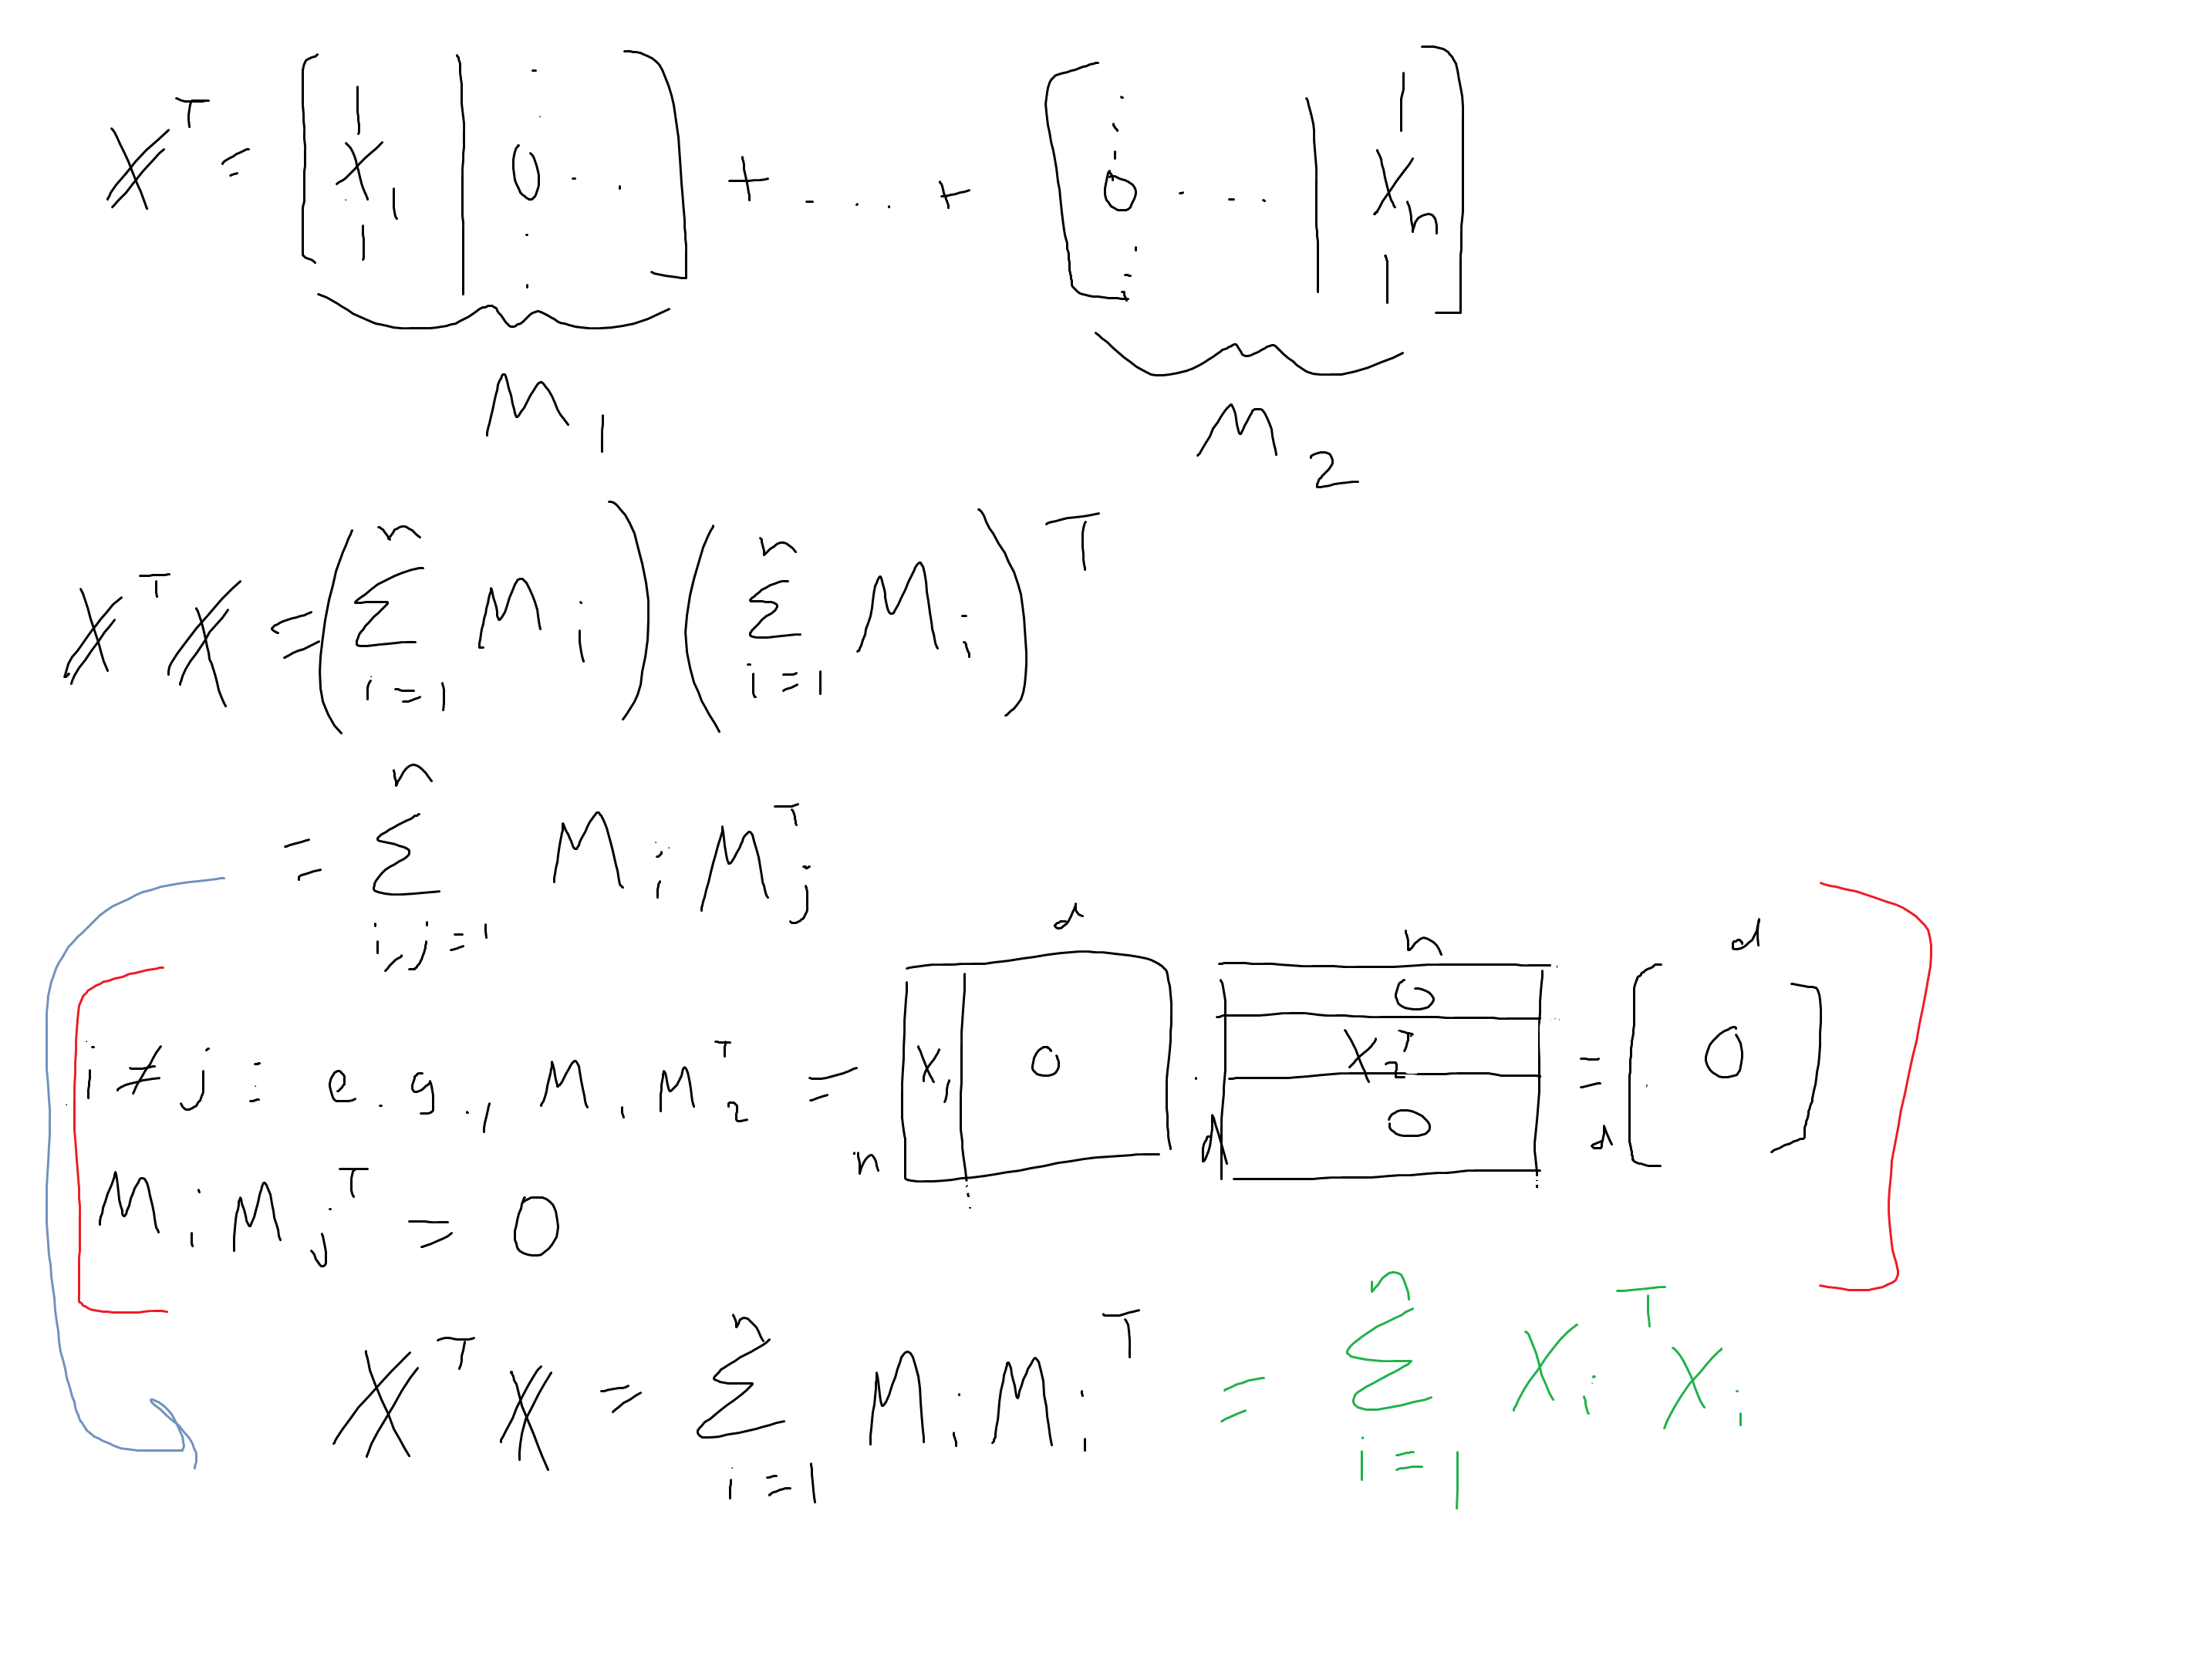 X^T = [ x_1 | 0 ... ] + ... + [ 0 ... | x_n ]
M_1 M_2
X^T X = ( Σ_{i=1}^{n} M_i ) ( Σ_{i=1}^{n} M_i )^T
= Σ_{i,j=1}^{n} M_i M_j^T
d n d
i ≠ j : e.g., M_1 M_2^T = [ x_1 | 0 ] · [ 0 | x_2^T | 0 ] = [ 0 ]
n d d
M_i M_j^T = 0
X^T X = Σ_{i=1}^{n} M_i M_i^T = Σ_{i=1}^{n} x_i^T x_i